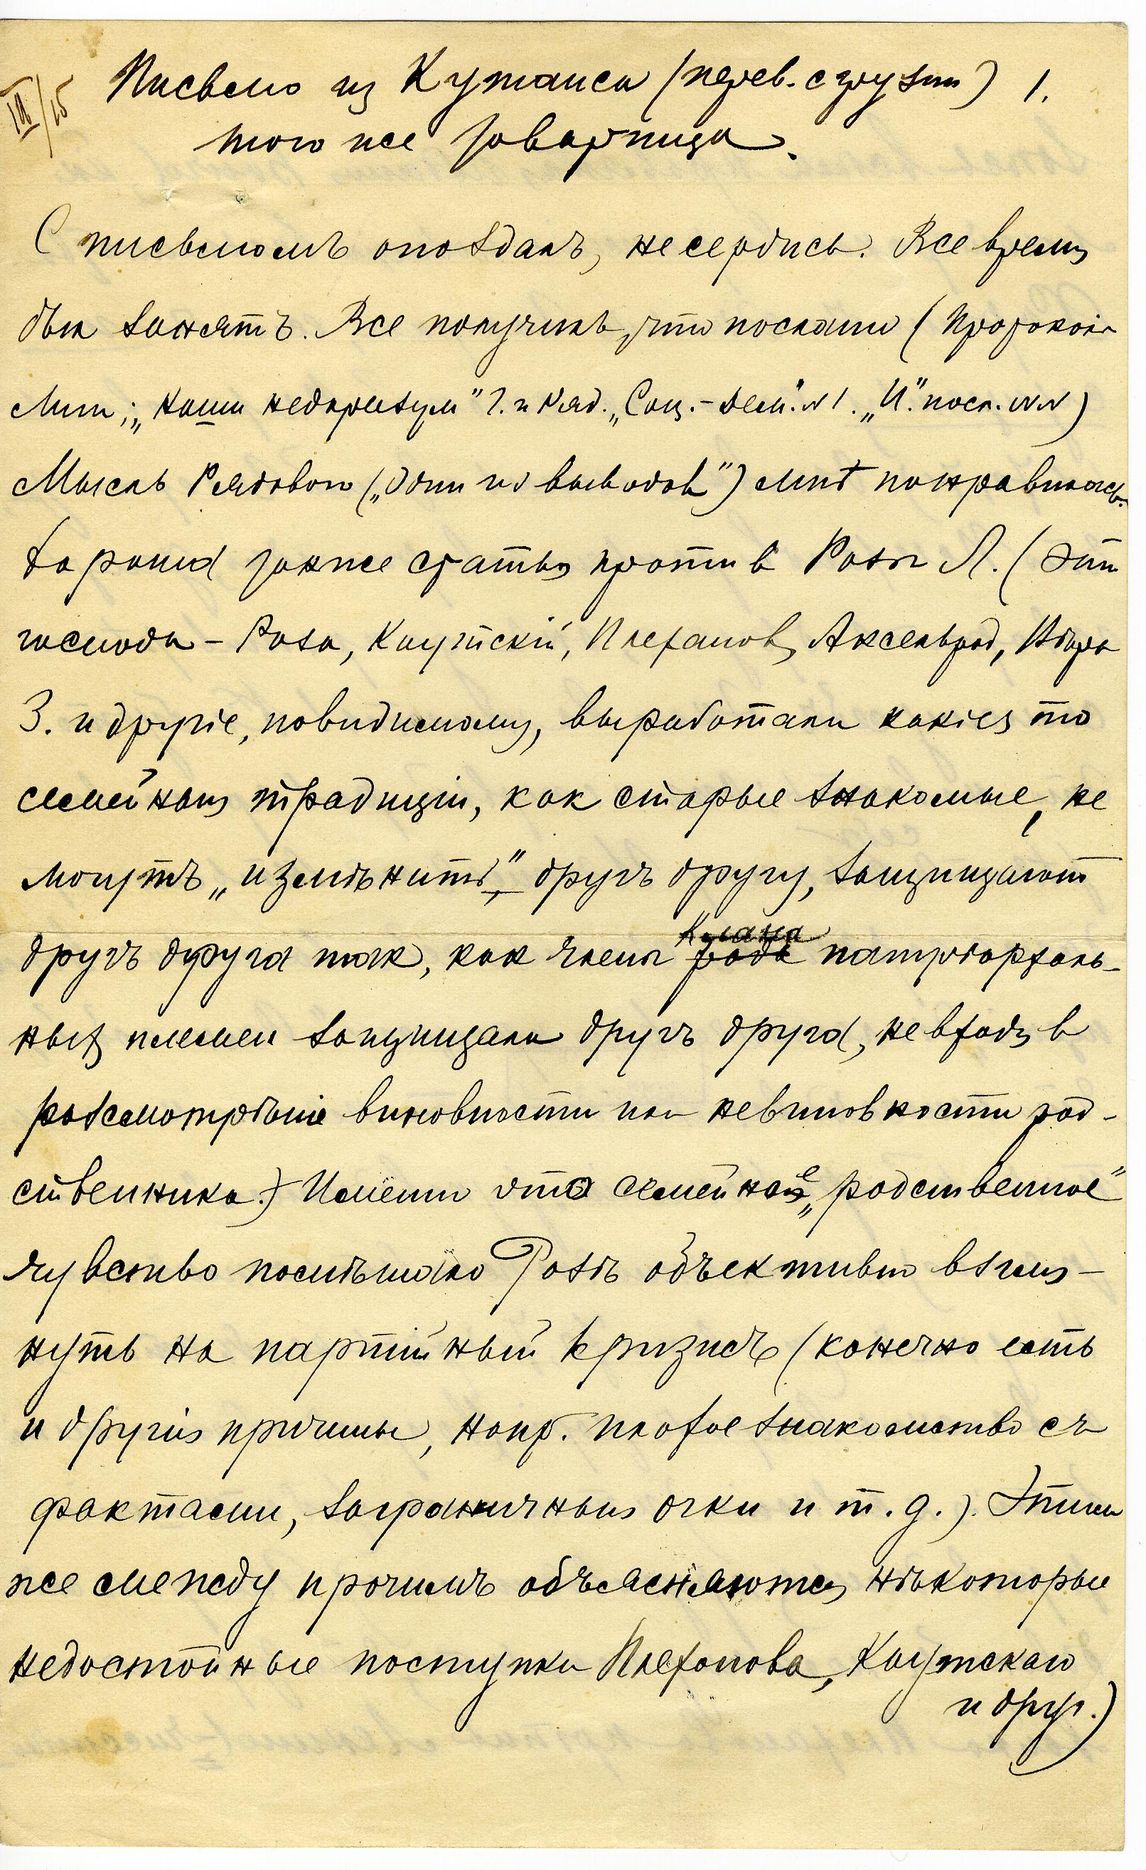 III/15
Письмо из Кутаиса (перев. с грузин) 1.
того же товарища.
С письмомъ опоздалъ, не сердись. Все время
был занятъ. Все получилъ, что послали (Протокол
Лиги; „Наши недоразум" Г. и Ряд. „Соц.-Дем." N 1. „И." посл. NN)
Мысль Рядового („Один из выводов") мнѣ понравилась.
Хороша также статья против Розы Л. (Эти
господа – Роза, Каутскій, Плеханов, Аксельрод, Вѣра
З. и другіе, повидимому, выработали какія то
семейныя традиціи, как старые знакомые, не
могутъ „измѣнить" другъ другу, защищают
другъ друга так, как члены рода клана патріархаль-
ных племен защищали другъ друга, не входя в
разсмотрѣніе виновности или невиновности род-
ственника.) Именно это семейное, „родственное"
чувство помѣшало Розѣ объективно взгля-
нуть на партійный кризисъ (конечно есть
и другія причины, напр. плохое знакомство съ
фактами, заграничныя очки и т. д.). Этим
же между прочимъ объясняются нѣкоторые
недостойные поступки Плеханова, Каутскаго
и друг.)